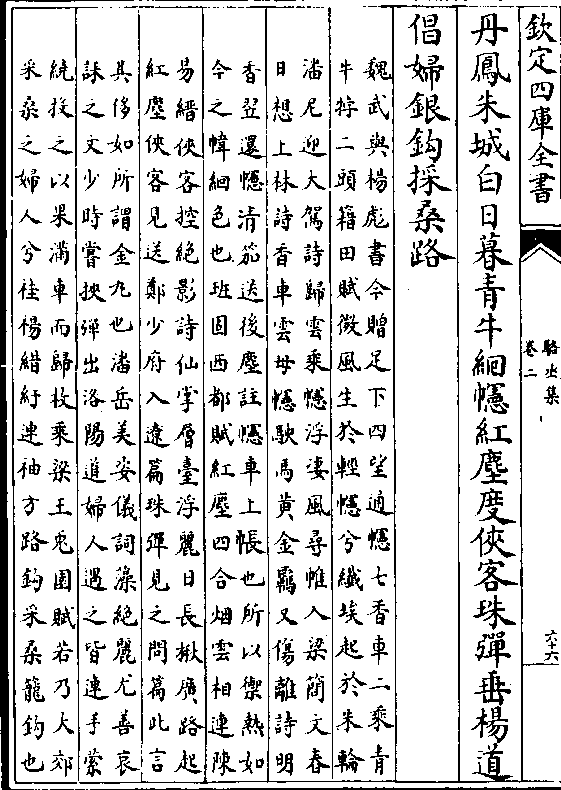 欽定四庫全書
駱丞集
卷二
六十六
丹鳳朱城白日暮青牛紺幰紅塵度俠客珠彈垂楊道
倡婦銀鈎採桑路
魏武與楊彪書今贈足下四望通幰七香車二乘青
牛牸二頭籍田賦微風生於輕幰兮纎埃起於朱輪
潘尼迎大駕詩歸雲乘幰浮凄風尋帷入梁簡文春
日想上林詩香車雲母幰駛馬黄金羈又傷離詩明
香翌還幰清笳送後塵註幰車上帳也所以禦熱如
今之幃紺色也班固西都賦紅塵四合烟雲相連陳
易縉俠客控絶影詩仙掌層臺浮麗日長楸廣路起
紅塵俠客見送鄭少府入遼篇珠彈見之問篇此言
其侈如所謂金丸也潘岳美姿儀詞藻絶麗尤善哀
誄之文少時嘗挾彈出洛陽道婦人遇之皆連手縈
統投之以果滿車而歸枚乘梁王兎園賦若乃大郊
采桑之婦人兮袿楊緒紆連袖方路鈎采桑籠鈎也